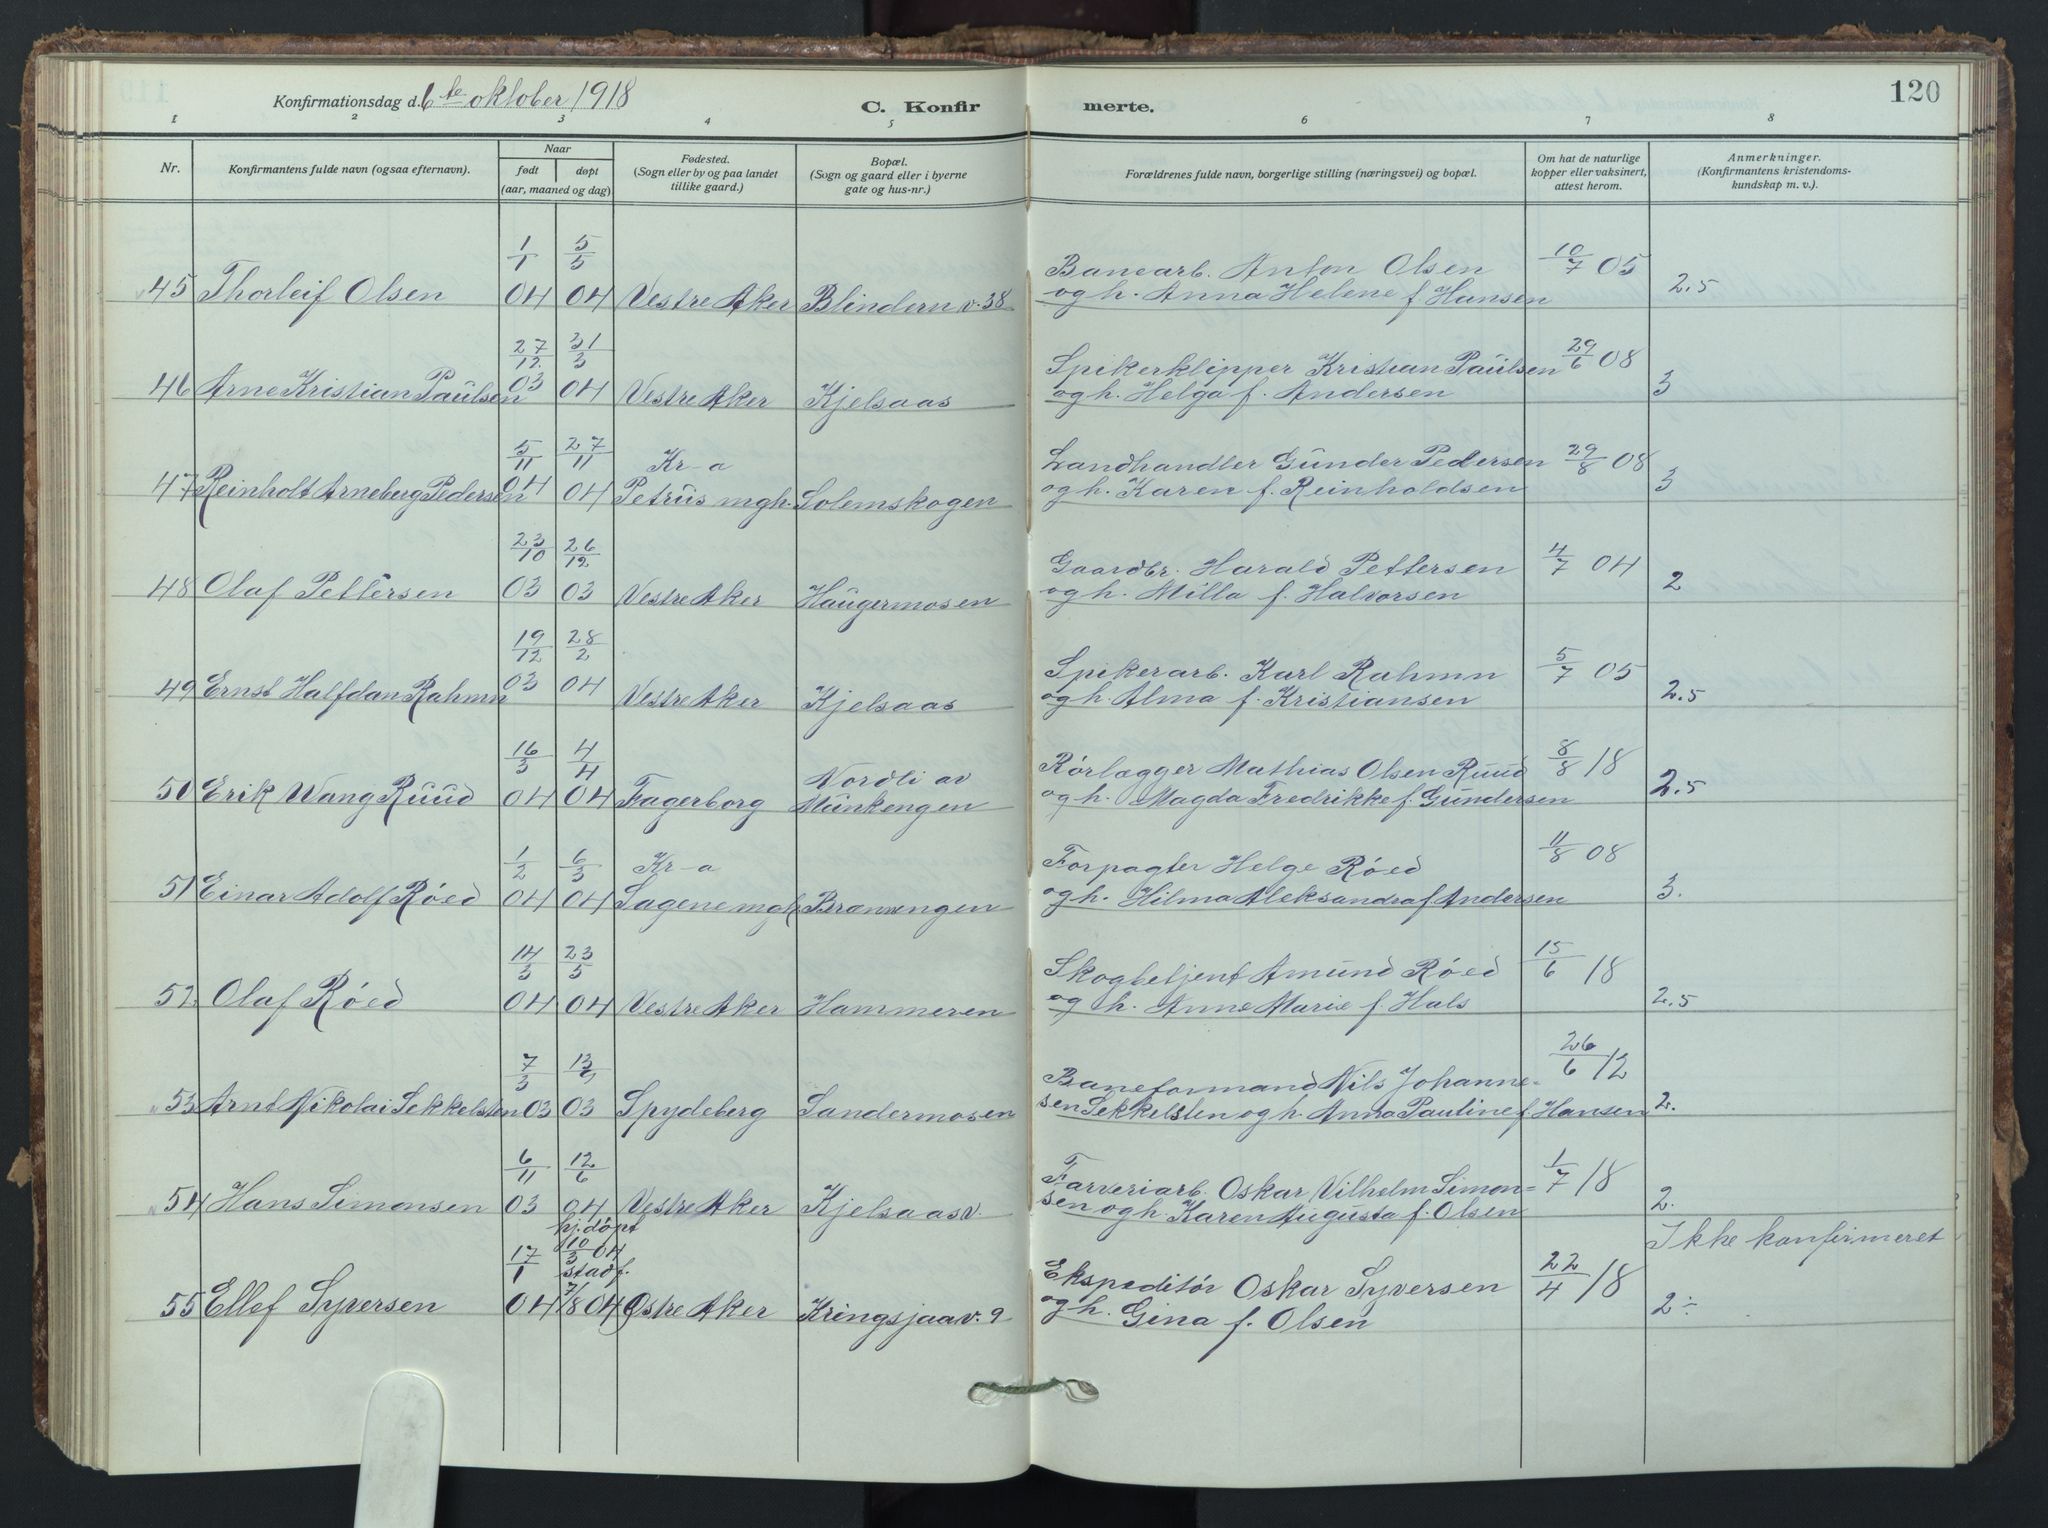 120
Konfirmationsdag d. 6te oktober 1918
C. Konfirmerte.
1 2 3 4 5 6 7 8
Nr.
Konfirmantens fulde navn (ogsaa efternavn).
Naar
født døpt
(aar, maaned og dag)
Fødested.
(Sogn eller by og paa landet
tillike gaard.)
Bopæl.
(Sogn og gaard eller i byerne
gate og hus-nr.)
Forældrenes fulde navn, borgerlige stilling (næringsvei) og bopæl.
Om hat de naturlige
kopper eller vaksinert,
attest herom.
Anmerkninger.
(Konfirmantens kristendoms-
kundskap m. v.)
1/1 5/5 Banearb. Anton Olsen 10/7 05
45 Thorleif Olsen 04 04 Vestre Aker Blindern v. 38 og h. Anna Helene f. Hansen 2.5
27/12 31/3 Spikerklipper Kristian Paulsen 29/6 08
46 Arne Kristian Paulsen 03 04 Vestre Aker Kjelsaas og h. Helga f. Andersen 3
5/11 27/11 Kr-a Landhandler Gunder Pedersen 29/8 08
47 Reinholt Arneberg Pedersen 04 04 Petrus mgh. Solemskogen og h. Karen f. Reinholdsen 3
23/10 26/12 Gaardbr. Harald Pettersen 4/7 04
48 Olaf Pettersen 03 03 Vestre Aker Haugermosen og h. Milla f. Halvorsen 2
19/12 28/2 Spikerarb. Karl Rahmn 5/7 05
49 Ernst Halfdan Rahmn 03 04 Vestre Aker Kjelsaas og h. Alma f. Kristiansen 2.5
16/3 4/4 Nordli av Rørlægger Mathias Olsen Ruud 8/8 18
50 Erik Wang Ruud 04 04 Fagerborg Munkengen og h. Magda Fredrikke f. Gundersen 2.5
1/2 6/3 Kr-a Forpagter Helge Røed 11/8 08
51 Einar Adolf Røed 04 04 Sagene mgh. Brannengen og h. Hilma Aleksandra f. Andersen 3.
14/3 23/5 Skogbetjent Amund Røed 15/6 18
52 Olaf Røed 04 04 Vestre Aker Hammeren og h. Anne Marie f. Hals 2.5
7/3 Baneformand Nils Johanne= 26/6 12
53 Arnt Nikolai Sekkelsten 03 03 Spydeberg Sandermosen sen Sekkelsten og h. Anna Pauline f. Hansen 2.
6/11 12/6 Farveriarb. Oskar Vilhelm Simon= 1/7 18
54 Hans Simonsen 03 04 Vestre Aker Kjelsaasv. sen og h. Karen Augusta f. Olsen 2.
hj.døpt Ikke konfirmeret
17/1 10/3 04 stadf. Ekspeditør Oskar Syversen 22/4 18
55 Ellef Syversen 04 7/8 04 Østre Aker Kringsjaav. 9 og h. Gina f. Olsen 2÷